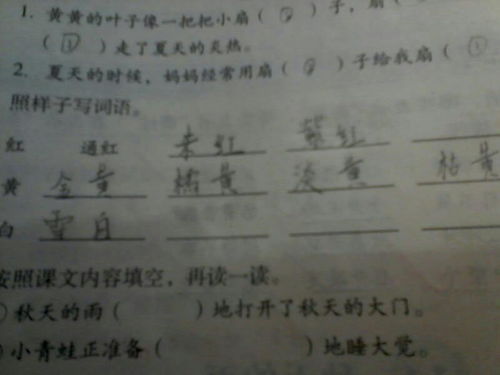 1. 黄黄的叶子像一把把小扇( ② )子,扇(
( ① )走了夏天的炎热。
2. 夏天的时候,妈妈经常用扇( ② )子给我扇( ①
照样子写词语。
红 通红 枣红 紫红
黄 金黄 橘黄 淡黄 枯黄
白 雪白
按照课文内容填空,再读一读。
秋天的雨( )地打开了秋天的大门。
小青蛙正准备( )地睡大觉。